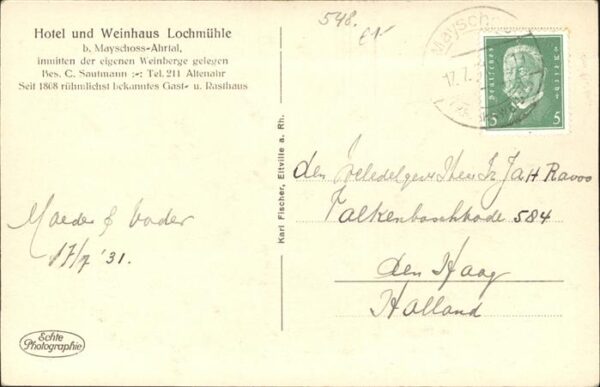 Hotel und Weinhaus Lochmühle
b. Mayschoss-Ahrtal,
inmitten der eigenen Weinberge gelegen
Bes. C. Sautmann :-: Tel. 211 Altenahr
Seit 1868 rühmlichst bekanntes Gast- u. Rasthaus
548.
Mayschoss
17.7.
Deutsches Reich
5 5
Karl Fischer, Eltville a. Rh.
den Weledelgev. Heer Ir JaH Ravoo
Valkenboschkade 584
den Haag
Holland
Moeder & Vader
17/7 '31.
Echte
Photographie